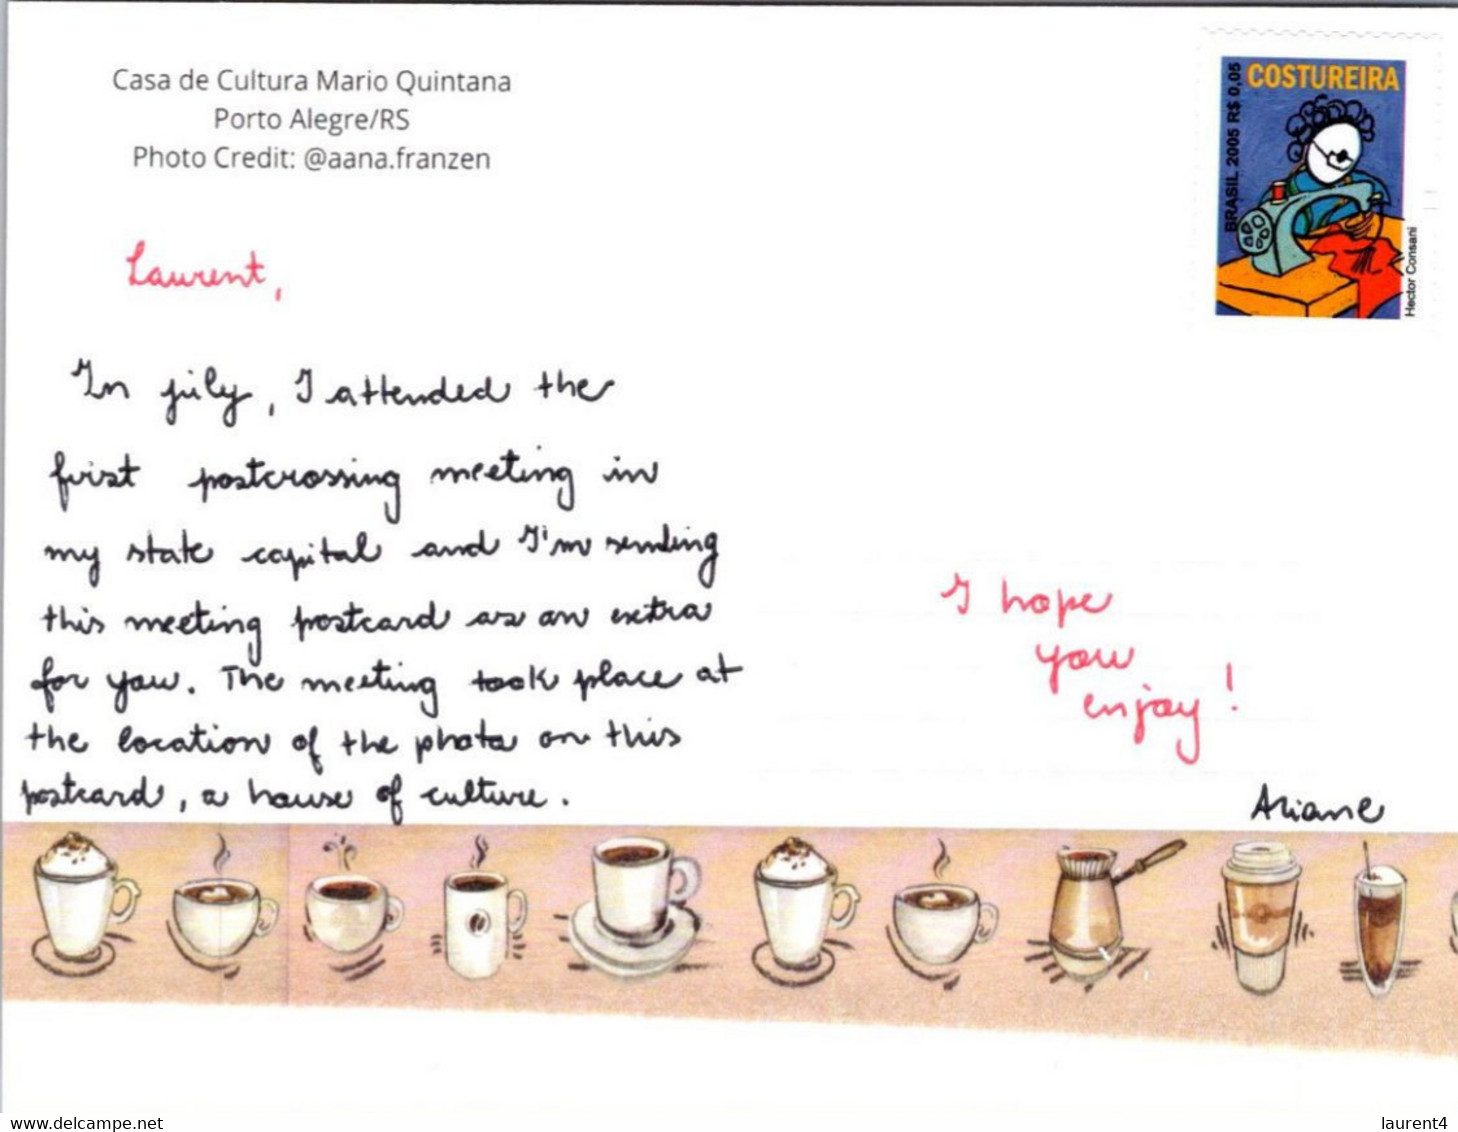 Casa de Cultura Mario Quintana
Porto Alegre/RS
Photo Credit: @aana.franzen
COSTUREIRA
BRASIL 2005 R$ 0,05
Hector Consani
Laurent,
In july, I attended the
first postcrossing meeting in
my state capital and I'm sending
this meeting postcard as an extra
for you. The meeting took place at
the location of the photo on this
postcard, a house of culture.
I hope
you
enjoy!
Ariane
www.delcampe.net
laurent4